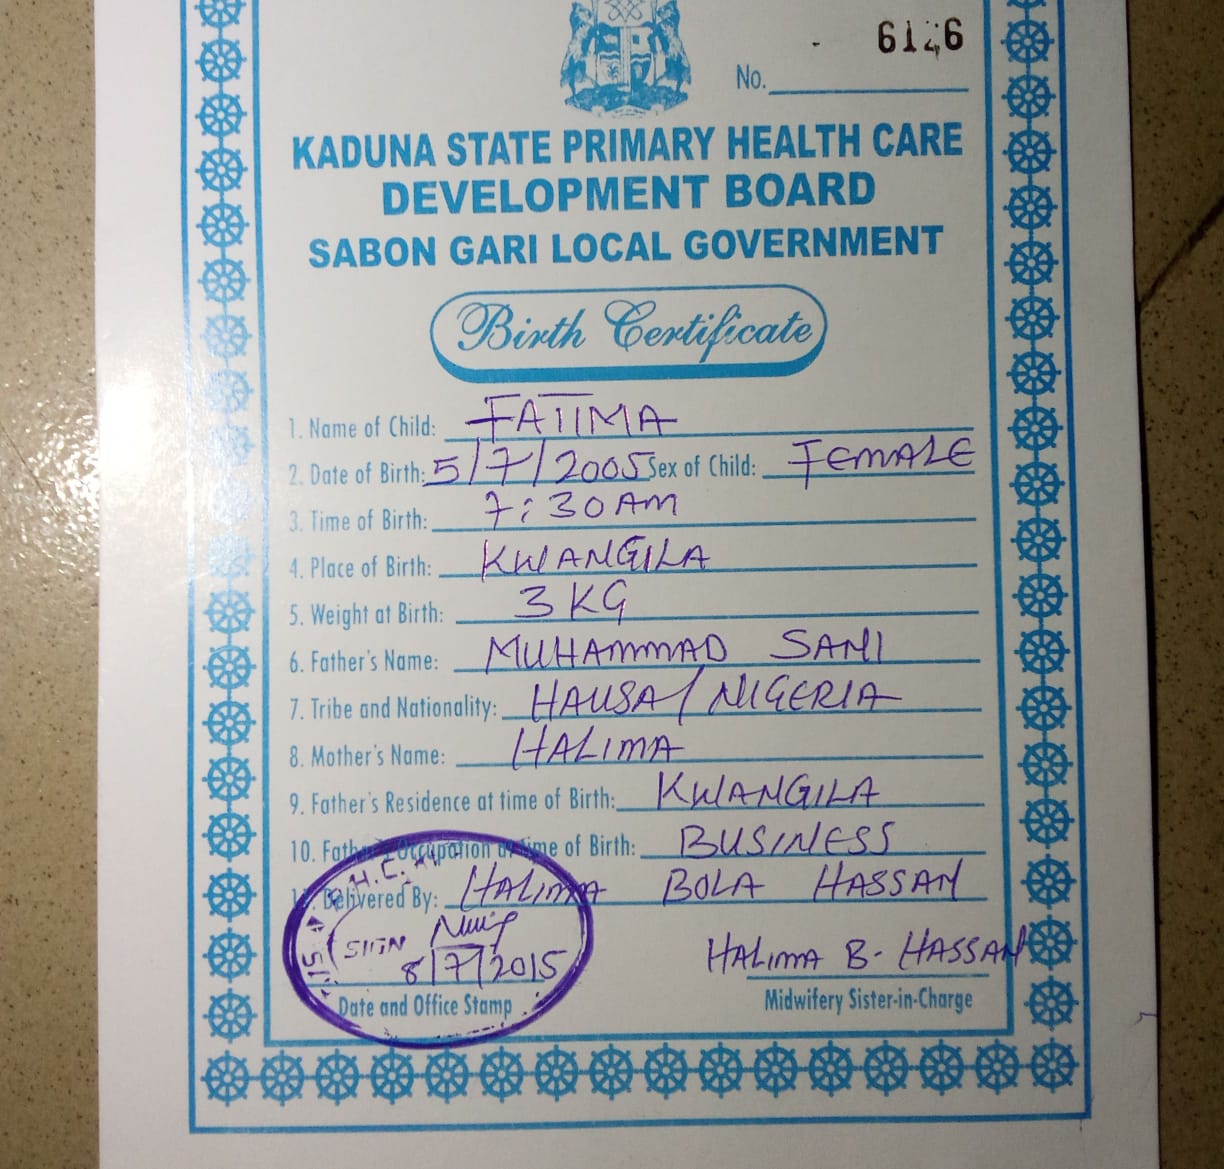 6126
No.
KADUNA STATE PRIMARY HEALTH CARE
DEVELOPMENT BOARD
SABON GARI LOCAL GOVERNMENT
Birth Certificate
1. Name of Child: FATIMA
2. Date of Birth: 5/7/2005 Sex of Child: FEMALE
3. Time of Birth: 7:30AM
4. Place of Birth: KWANGILA
5. Weight at Birth: 3KG
6. Father's Name: MUHAMMAD SANI
7. Tribe and Nationality: HAUSA/NIGERIA
8. Mother's Name: HALIMA
9. Father's Residence at time of Birth: KWANGILA
10. Father's Occupation at time of Birth: BUSINESS
11. Delivered By: HALIMA BOLA HASSAN
SIGN
8/7/2015
Date and Office Stamp
HALIMA B. HASSAN
Midwifery Sister-in-Charge